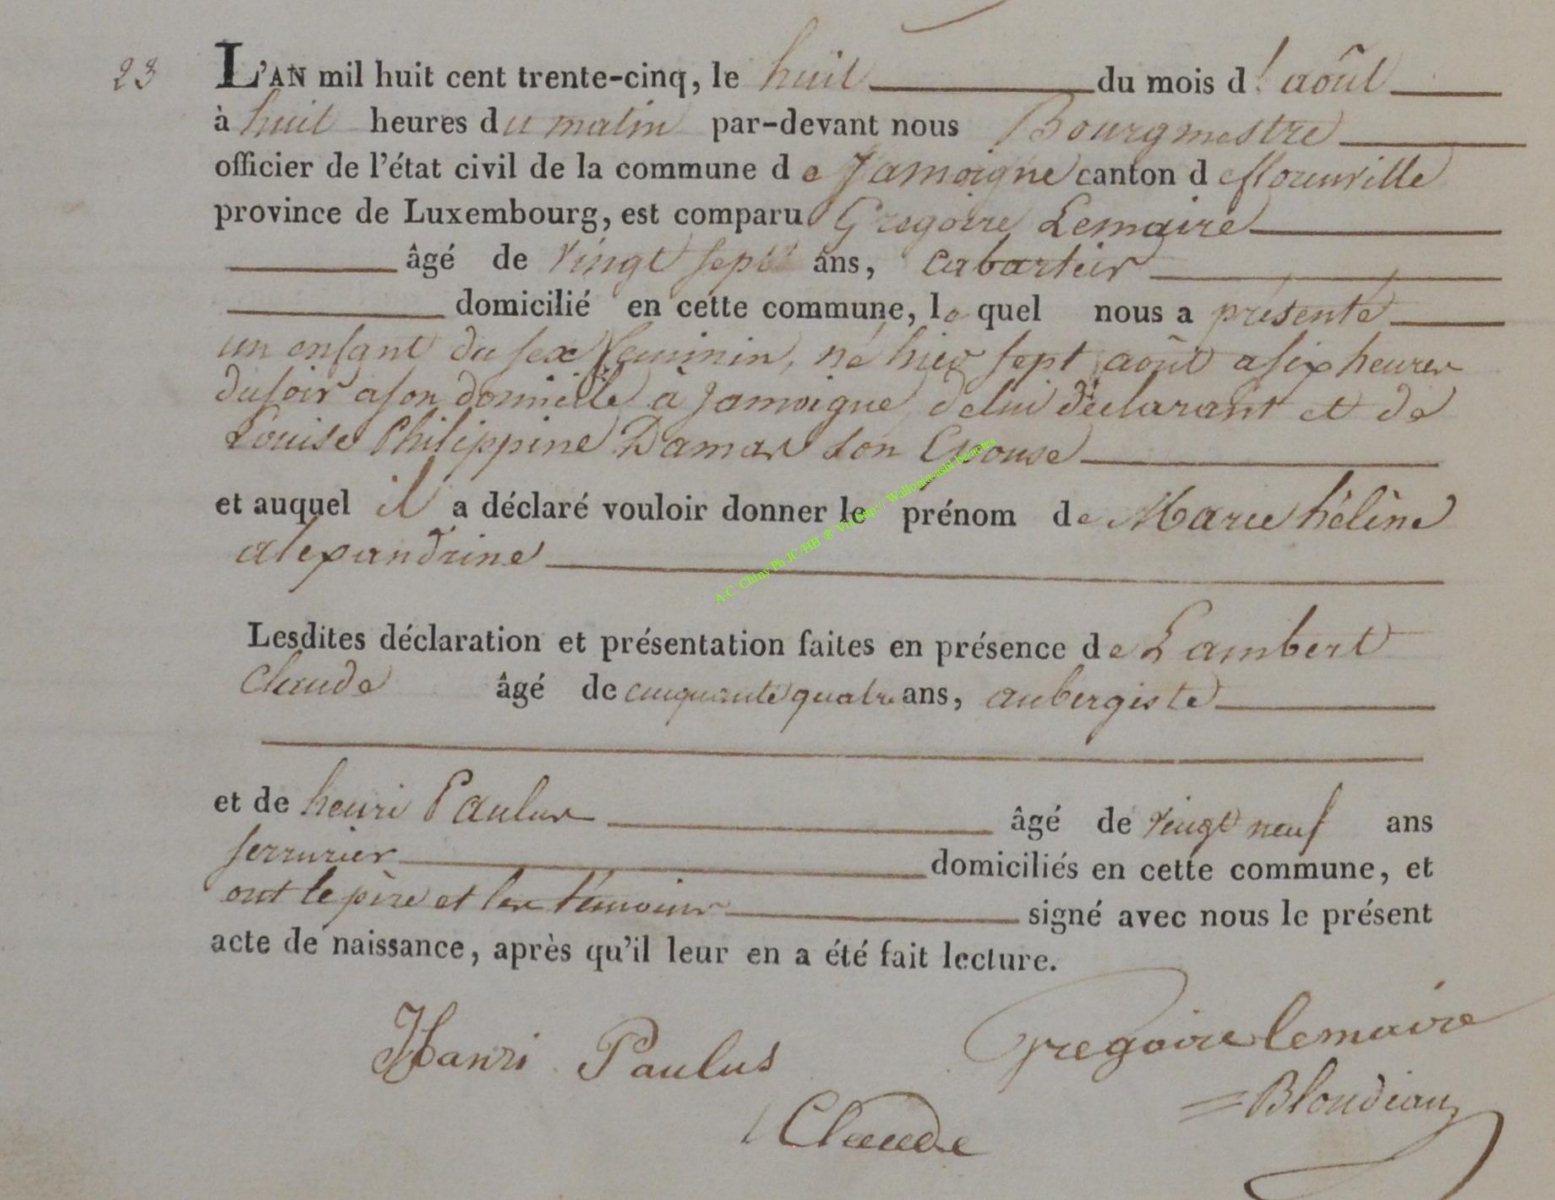 23 L'AN mil huit cent trente-cinq, le huit du mois d'août
à huit heures du matin par-devant nous Bourgmestre
officier de l'état civil de la commune de Jamoigne canton de florenville
province de Luxembourg, est comparu Gregoire Lemaire
âgé de vingt sept ans, cabartier
domicilié en cette commune, lequel nous a présenté
un enfant du sex feminin, né hier sept août a six heures
du soir a son domicille à Jamoigne, de lui déclarant et de
Louise Philippine Damas son Epouse
et auquel il a déclaré vouloir donner le prénom de Marie hélène
alexandrine
Lesdites déclaration et présentation faites en présence de Lambert
Claude âgé de cinquante quatre ans, aubergiste
et de henri Paulus âgé de vingt neuf ans
serrurier domiciliés en cette commune, et
ont le père et les témoins signé avec nous le présent
acte de naissance, après qu'il leur en a été fait lecture.
Hanri Paulus Gregoire lemaire
Blondiaux
Claude